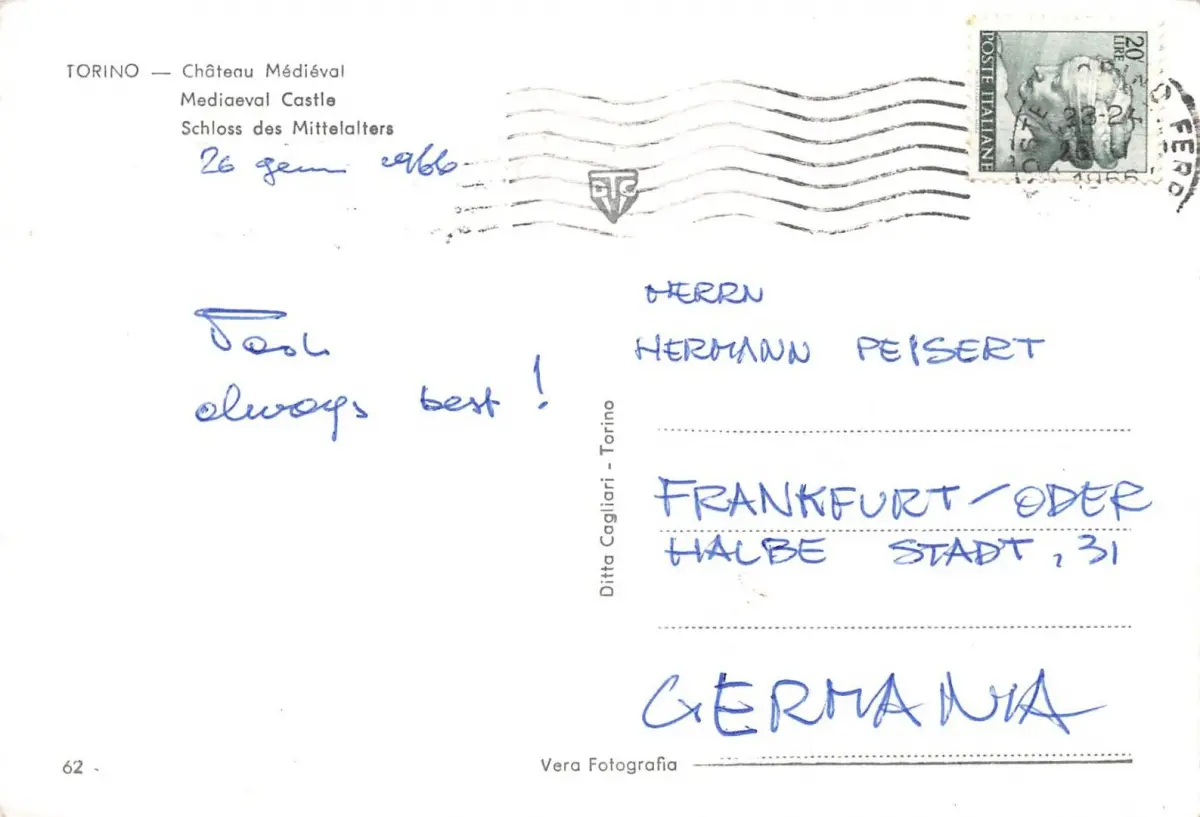 TORINO — Château Médiéval
Mediaeval Castle
Schloss des Mittelalters
26 genn 1966
20 LIRE
POSTE ITALIANE
23-24
1966
FERR
HERRN
HERMANN PEISERT
always best!
FRANKFURT/ODER
HALBE STADT, 31
GERMANIA
Ditta Cagliari - Torino
62
Vera Fotografia